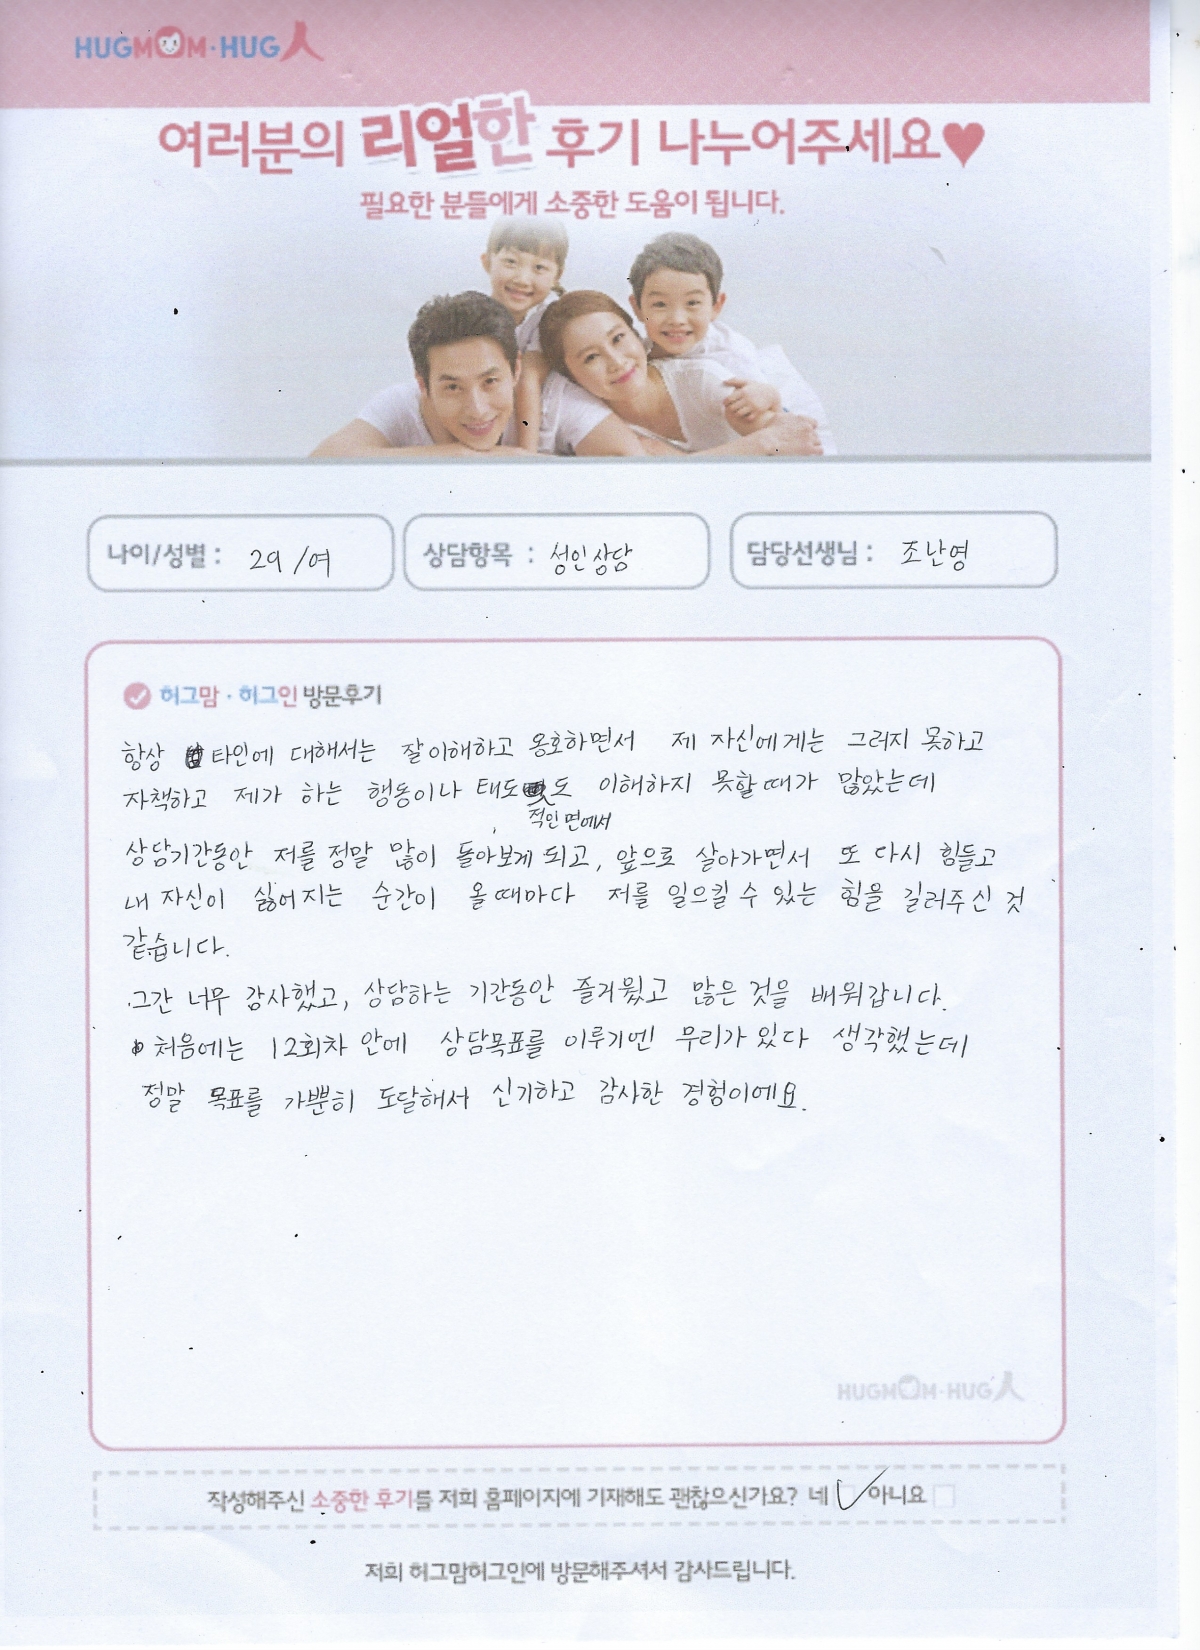 HUGMOM·HUG人
여러분의 리얼한 후기 나누어주세요♥
필요한 분들에게 소중한 도움이 됩니다.
나이/성별 : 29 /여
상담항목 : 성인상담
담당선생님 : 조난영
허그맘 · 허그인 방문후기
항상 타인에 대해서는 잘 이해하고 옹호하면서 제 자신에게는 그러지 못하고
자책하고 제가 하는 행동이나 태도도 이해하지 못할 때가 많았는데
적인 면에서
상담기간동안 저를 정말 많이 돌아보게 되고, 앞으로 살아가면서 또 다시 힘들고
내 자신이 싫어지는 순간이 올 때마다 저를 일으킬 수 있는 힘을 길러주신 것
같습니다.
그간 너무 감사했고, 상담하는 기간동안 즐거웠고 많은 것을 배워갑니다.
처음에는 12회차 안에 상담목표를 이루기엔 무리가 있다 생각했는데
정말 목표를 가뿐히 도달해서 신기하고 감사한 경험이에요.
HUGMOM·HUG人
작성해주신 소중한 후기를 저희 홈페이지에 기재해도 괜찮으신가요? 네 ✓ 아니요 □
저희 허그맘허그인에 방문해주셔서 감사드립니다.